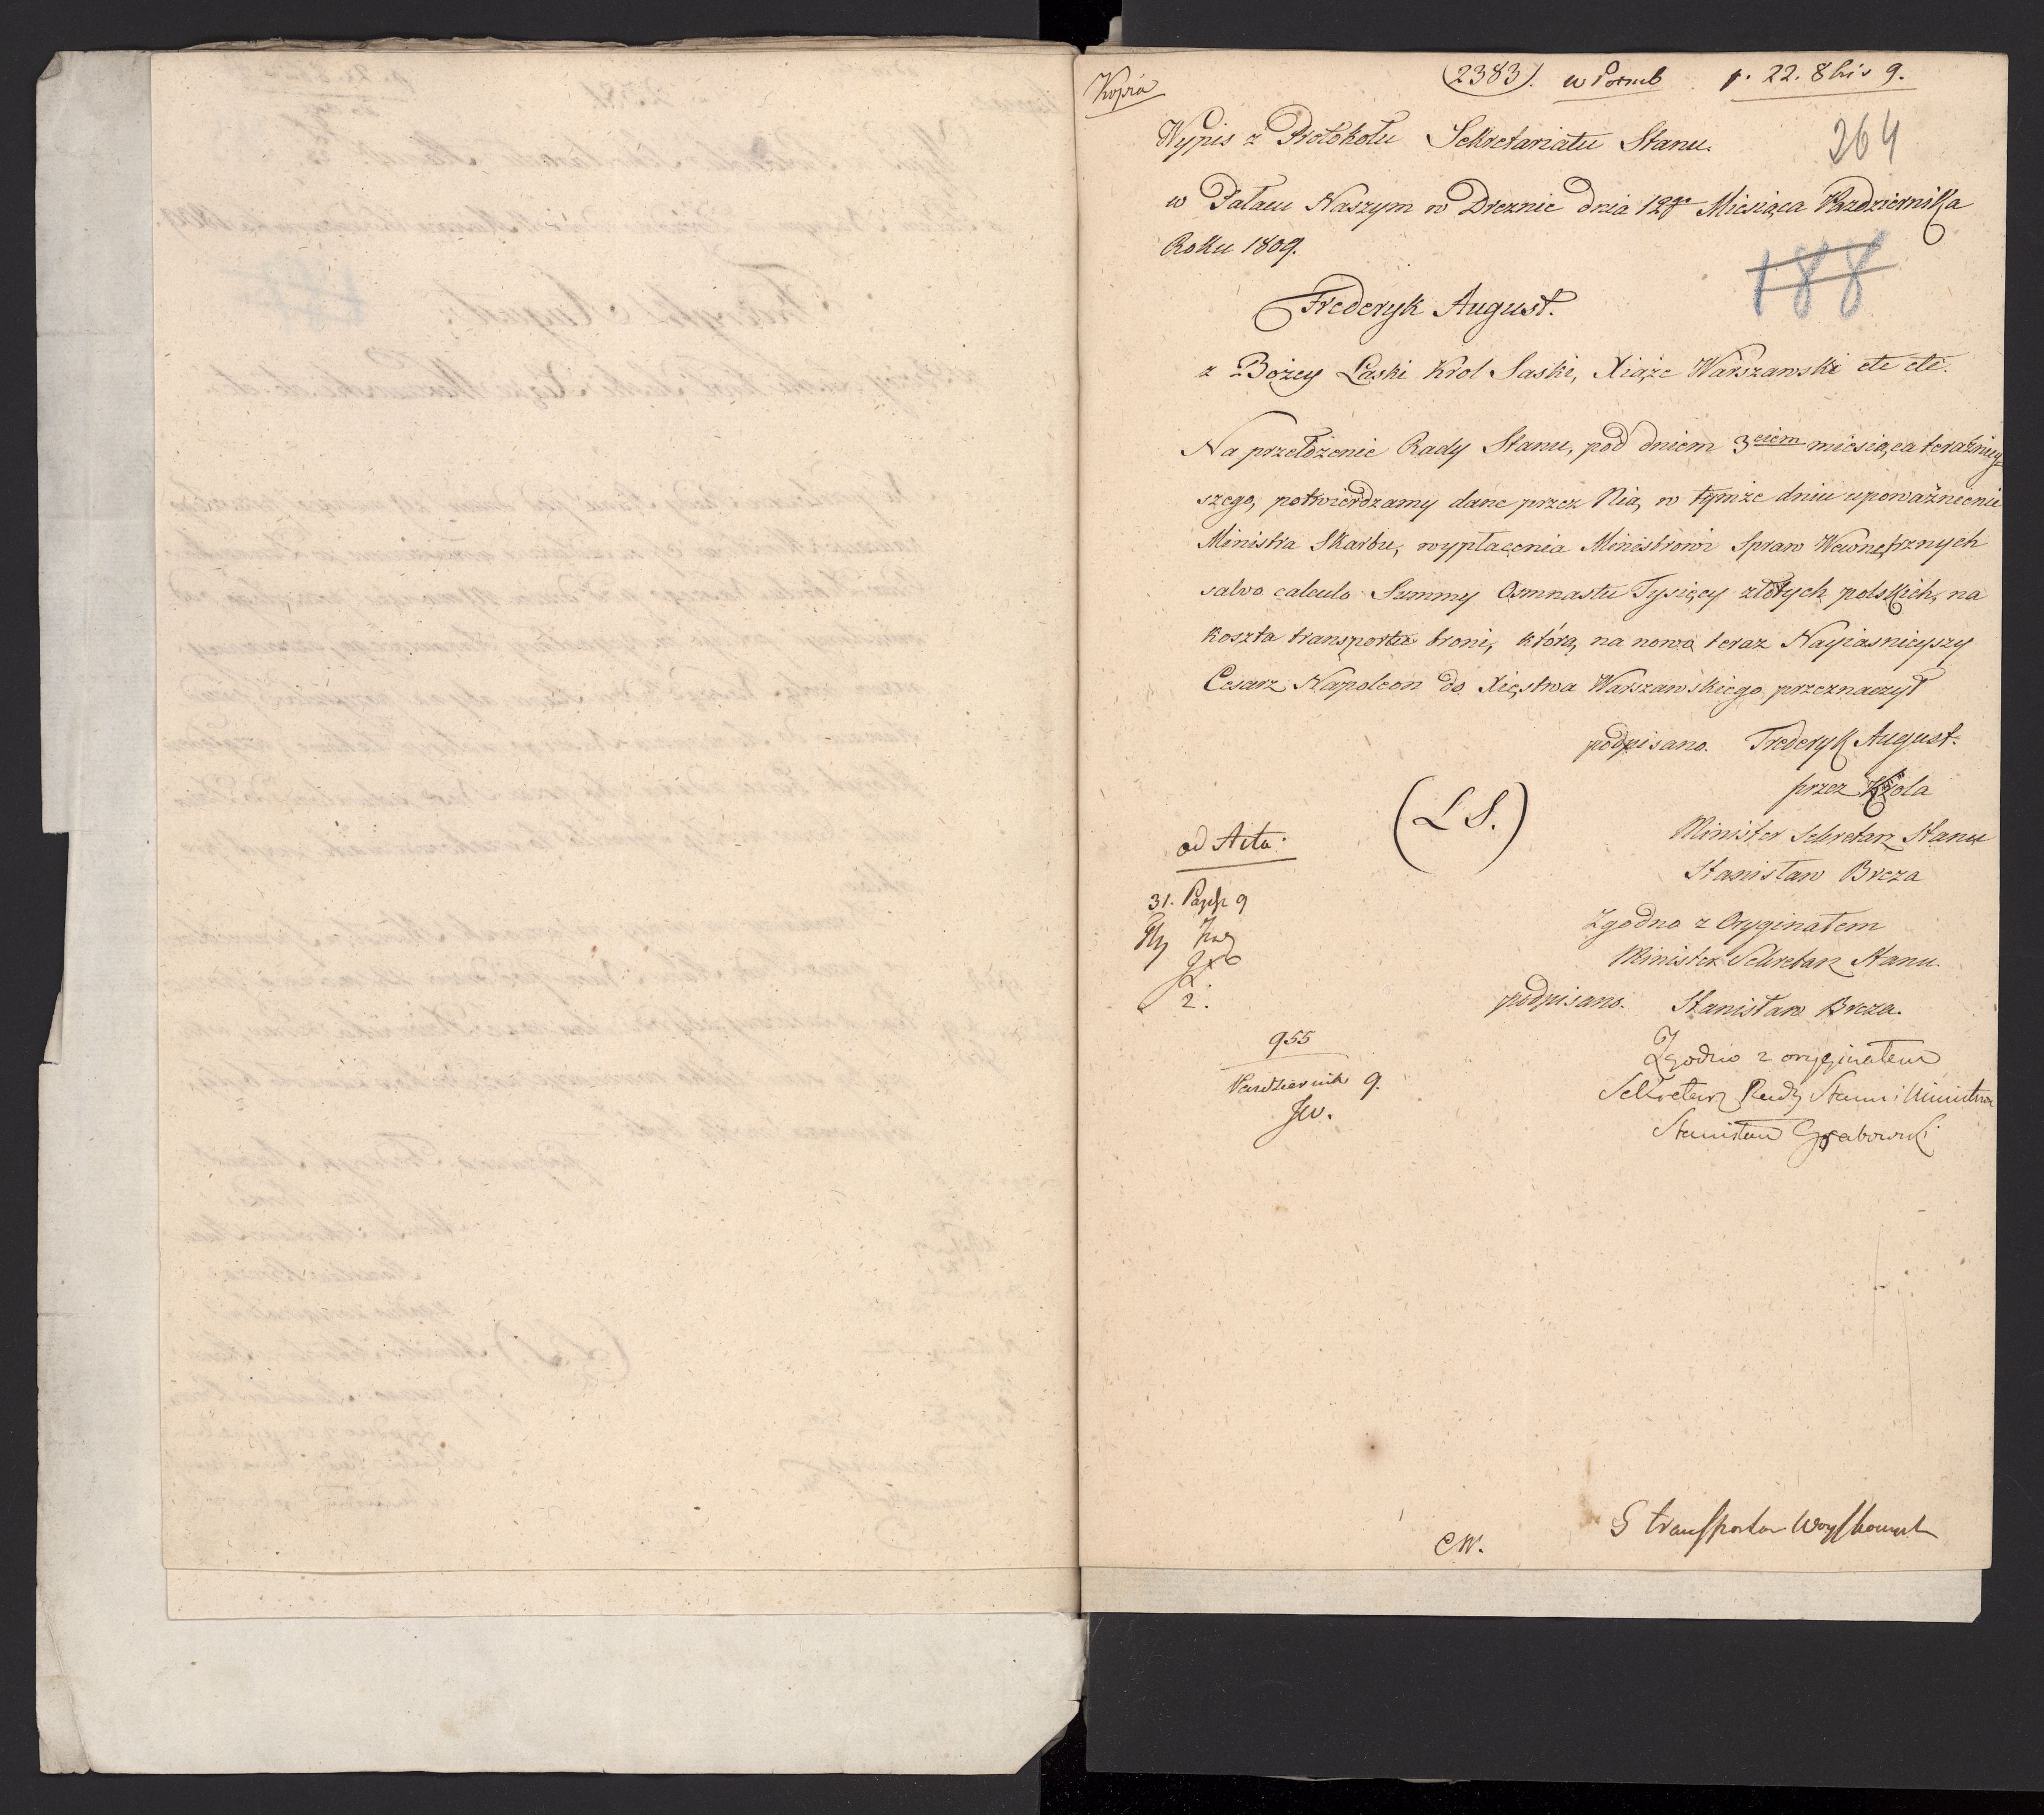 Kopia
(2383). p. 22. 8bris 9.
Wypis z Protokołu Sekretariatu Stanu.
264
w Pałacu Naszym w Dreznie dnia 12go Miesiąca Października
Roku 1809.
188
Frederyk August.
z Bożey Łaski Krol Saski, Xiąże Warszawski etc etc.
Na przełożenie Rady Stanu, pod dniem 3ciem miesiąca teraźniey=
szego, potwierdzamy dane przez Nią, w tymże dniu upoważnienie
Ministra Skarbu, wypłacenia Ministrowi Spraw Wewnętrznych
salvo calculo Summy Osmnastu Tysięcy złotych polskich, na
koszta transportu broni, którą na nowo teraz Nayiasnieyszy
Cesarz Napoleon do Xięstwa Warszawskiego przeznaczył
podpisano. Frederyk August.
przez Krola
(L S.)
Minister Sekretarz Stanu
ad Acta.
Stanisław Breza
31. Paźdz 9
Zgodno z Oryginałem
Minister Sekretarz Stanu.
2.
podpisano. Stanisław Breza.
955
Zgodno z oryginałem
Październik 9.
Sekretarz Rady Stanu i Ministrow
Stanisław Grabowski
S transportow Woyskowych
CW.